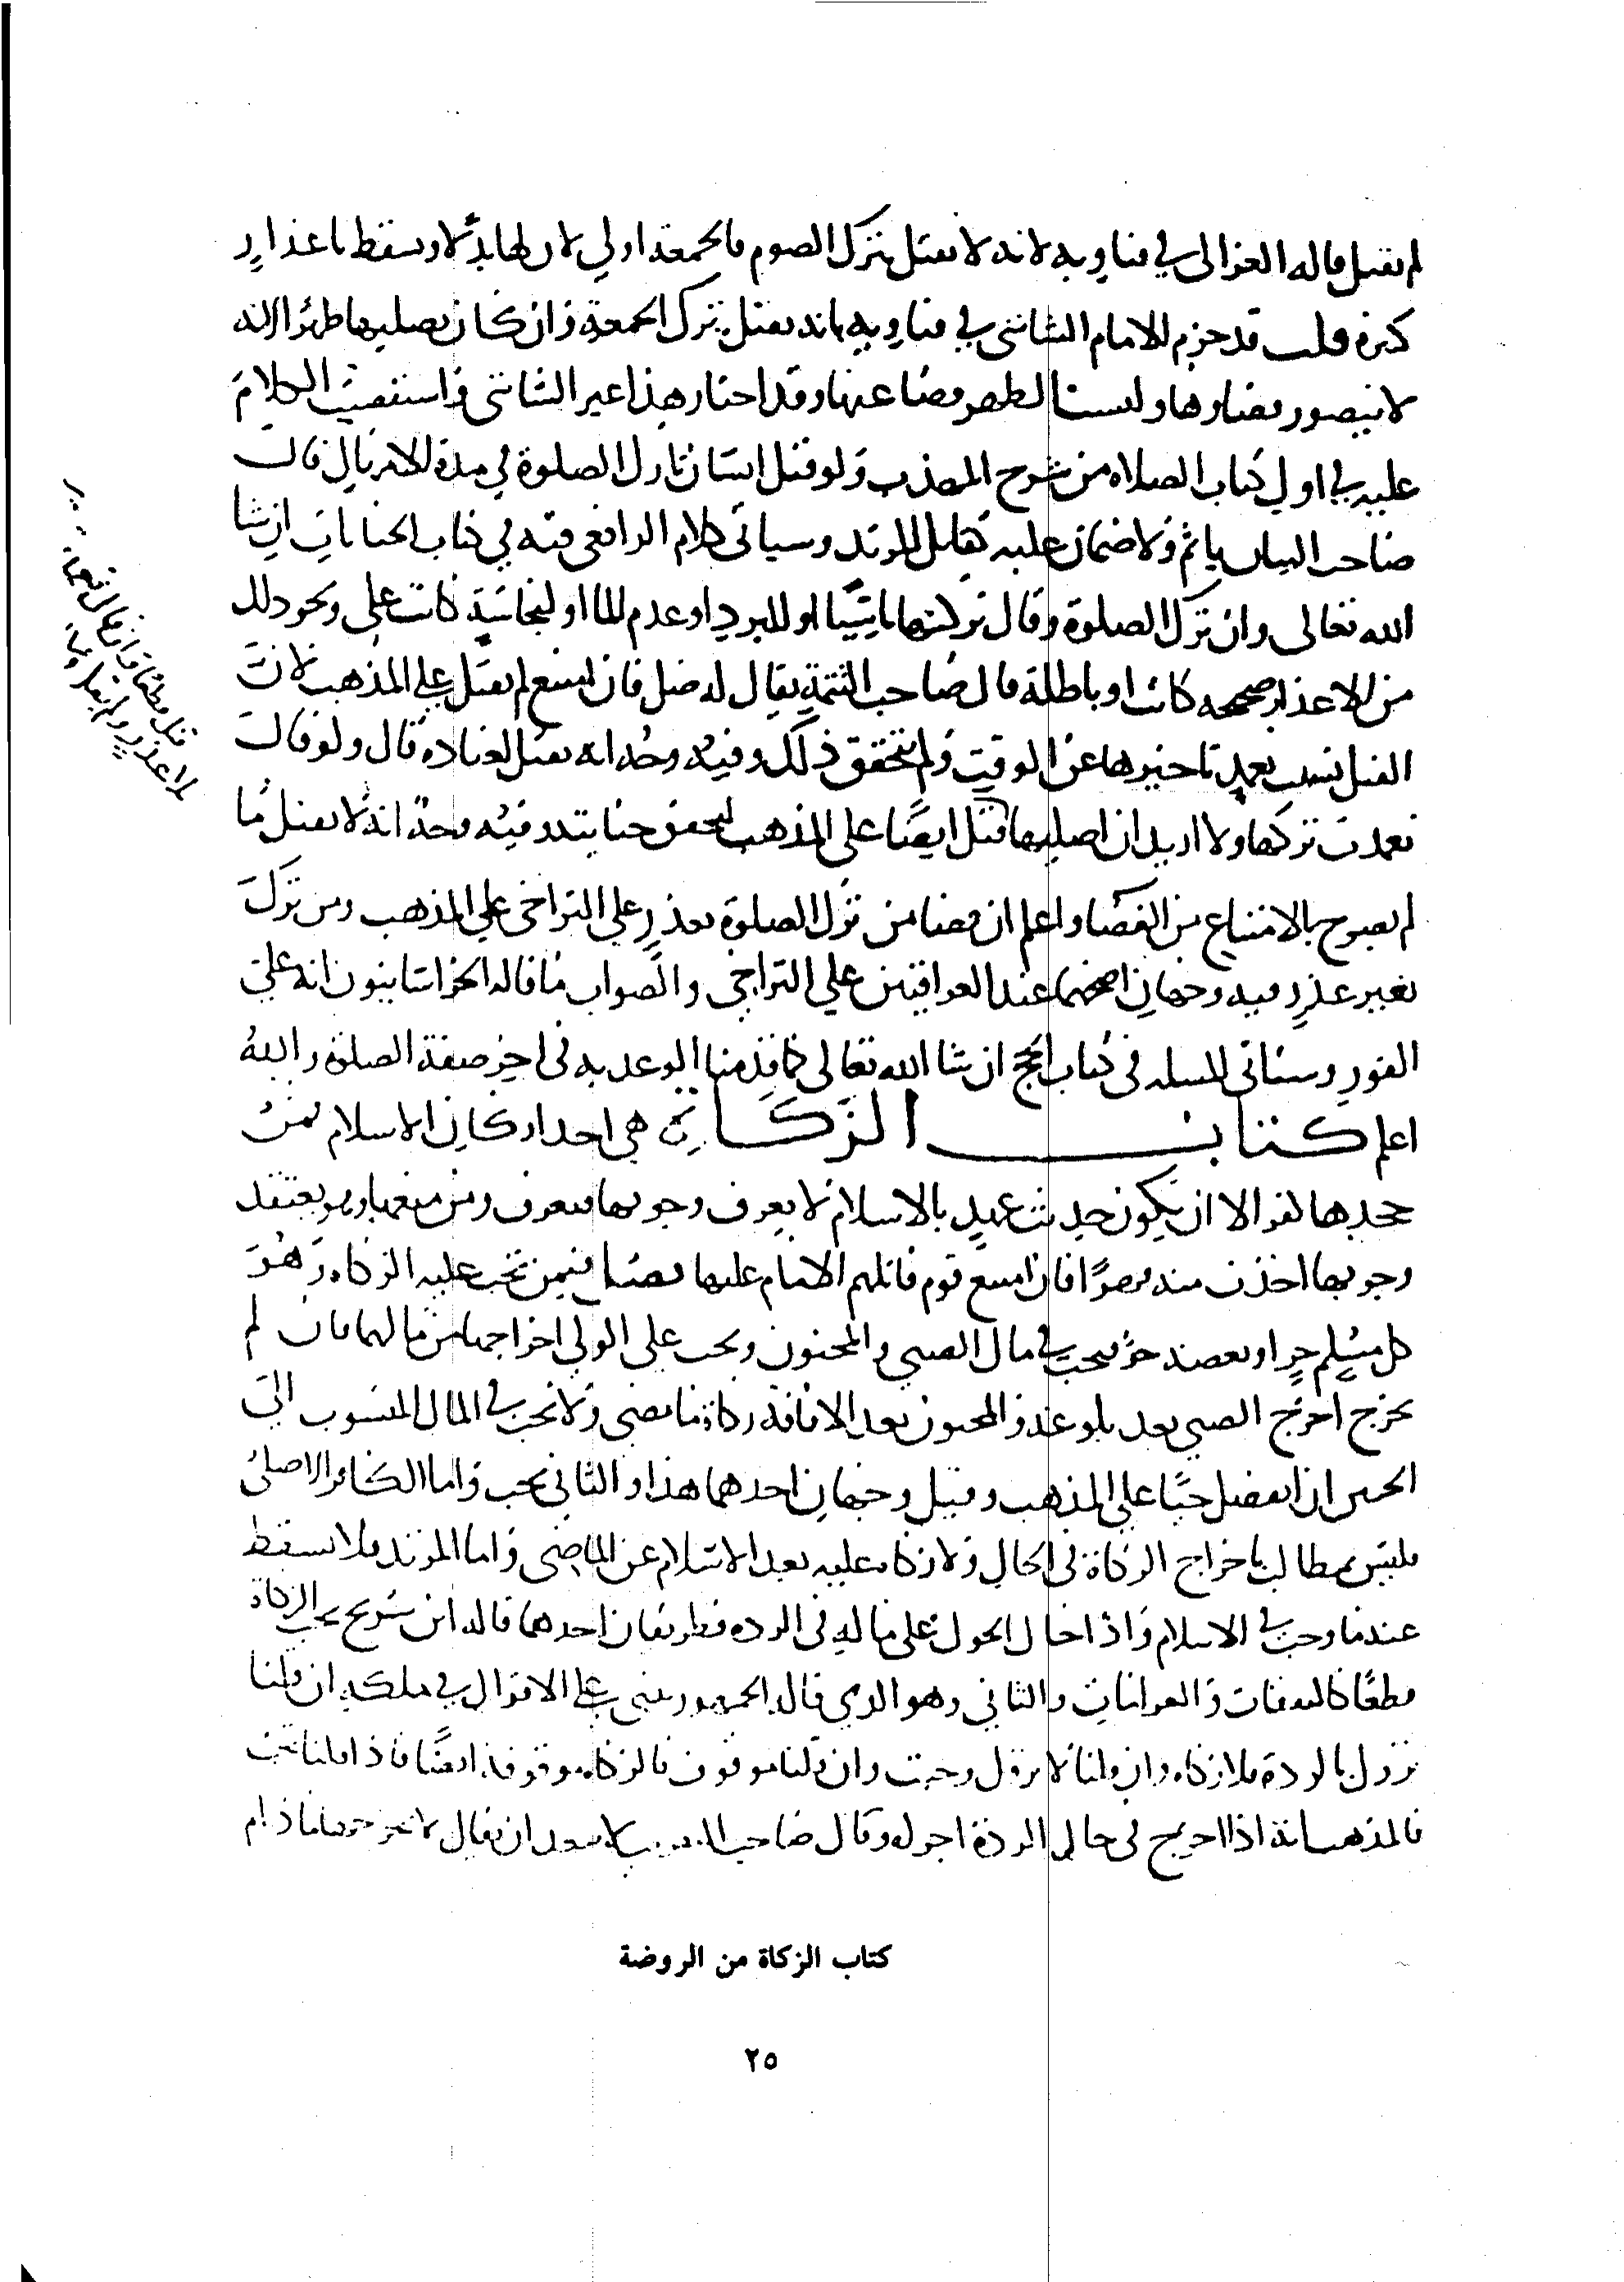 لم يقتل قاله الغزالي في فتاويه لانه لا يقتل بترك الصوم فالجمعة اولي لان لها بدلا وتسقط باعذار
كثيرة قلت قد جزم الامام الشاشي في فتاويه بانه يقتل بترك الجمعة وان كان يصليها ظهرا لانه
لا يتصور قضاوها وليست الظهر قضا عنها وقد اختار هذا غير الشاشي واستقصيت الكلام
عليه في اول كتاب الصلاه من شرح المهذب ولو قتل انسان تارك الصلوة في مدة الامهال قال
صاحب البيان ياثم ولا ضمان عليه كقاتل المرتد وسياتي كلام الرافعي فيه في كتاب الجنايات ان شا
الله تعالى وان ترك الصلوة وقال تركتها ناسيا او للبرد او عدم الما او لنجاسة كانت علي ونحو ذلك
من الاعذار صحيحه كانت او باطلة قال صاحب التتمة يقال له صل فان امتنع لم يقتل علي المذهب لان
القتل بسبب تعمد تاخيرها عن الوقت ولم يتحقق ذلك وفيه وجه انه يقتل لعناده قال ولو قال
تعمدت تركها ولا اريد ان اصليها قتل ايضا على المذهب لتحقق جنايته وفيه وجه انه لا يقتل ما
لم يصرح بالامتناع من القضا واعلم ان قضا من ترك الصلوة بعذر على التراخي علي المذهب ومن ترك
بغير عذر فيه وجهان اصحهما عند العراقيين علي التراخي والصواب ما قاله الخراسانيون انه على
الفور وستاتي المسله في كتاب الحج ان شا الله تعالى كما قدمنا الوعد به في اخر صفة الصلوة والله
اعلم كتاب الزكاة هي احد اركان الاسلام فمن
جحدها كفر الا ان يكون حديث عهد بالاسلام لا يعرف وجوبها فيعرف ومن منعها وهو يعتقد
وجوبها اخذت منه قهرا فان امتنع قوم قاتلهم الامام عليها فصل فيمن تجب عليه الزكاه وهو
كل مسلم حر او بعضه حر فتجب في مال الصبي والمجنون ويجب علي الولي اخراجها من مالهما فان لم
يخرج اخرج الصبي بعد بلوغه والمجنون بعد الافاقة زكاة ما مضى ولا تجب في المال المنسوب الي
الجنين ان انفصل حيا علي المذهب وقيل وجهان احدهما هذا والثاني تجب واما الكافر الاصلي
فليس بمطالب باخراج الزكاة في الحال ولا زكاه عليه بعد الاسلام عن الماضي واما المرتد فلا يسقط
عنه ما وجب في الاسلام واذا حال الحول على ماله في الرده فطريقان احدهما قاله ابن سريج تجب الزكاة
قطعا كالنفقات والغرامات والثاني وهو الذي قاله الجمهور يبنى علي الاقوال في ملكه ان قلنا
يزول بالردة فلا زكاه وان قلنا لا يزول وجبت وان قلنا موقوف فالزكاه موقوفة ايضا فاذا قلنا تجب
فالمذهب انه اذا اخرج في حال الردة اجزاه وقال صاحب التقريب لا يبعد ان يقال لا يخرجها ما دام
قتل قطعا وان قال
بلا عذر ولم يقل
كتاب الزكاة من الروضة
٢٥